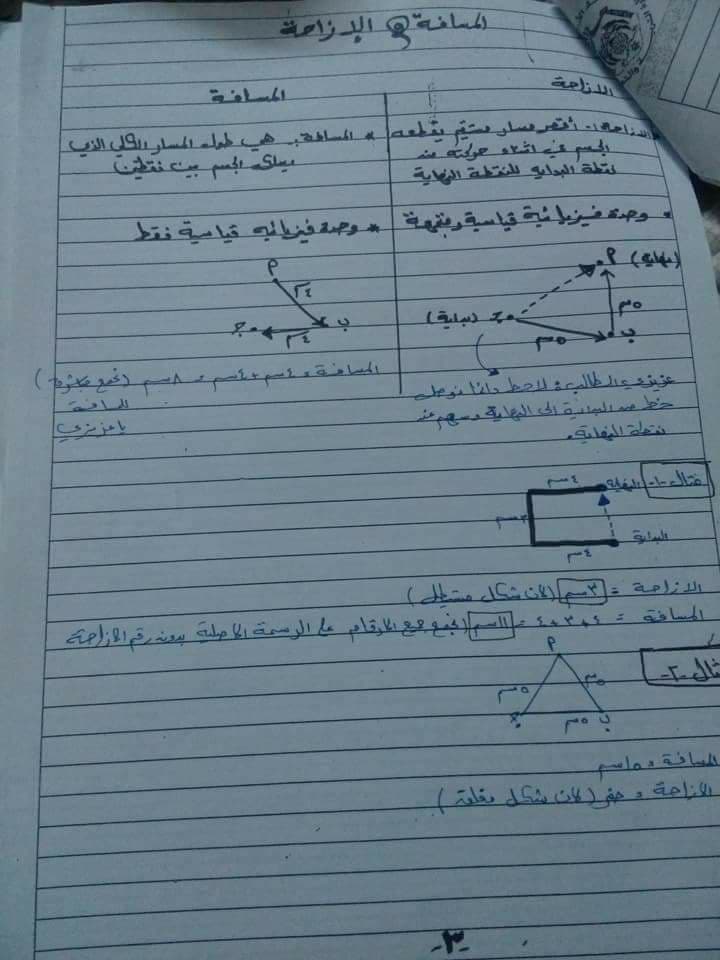 المسافة و الإزاحة
الازاحة
* الازاحة:- أقصر مسار مستقيم يقطعه
الجسم في اثناء حركته من
نقطة البداية للنقطة النهاية
* وحدة فيزيائية قياسية ومتجهة
أ (نهاية)
جـ (بداية)
ب
٥سم
٥سم
عزيزي الطالب: لاحظ دائما نوصل
خط من البداية الى النهاية وسهم عند
نقطة النهاية.
المسافة
* المسافة:. هي طول المسار الكلي الذي
يسلكه الجسم بين نقطتين
* وحدة فيزيائية قياسية فقط
أ
٤سم
ب
جـ
٤سم
المسافة = ٤سم + ٤سم = ٨سم (نجمع
المسافة
يا عزيزي
مثال -١-
٤سم
النهاية
٣سم
البداية
٤سم
الازاحة = ٣سم (لان شكل مستطيل)
المسافة = ٤+٣+٤ = ١١سم (نجمع جمع الأرقام على الرسمة الاصلية بدون رقم الازاحة
مثال -٢-
أ
٥سم
٥سم
جـ
٥سم
ب
المسافة = ١٥سم
الازاحة = صفر (لان شكل مغلقة)
-٣-